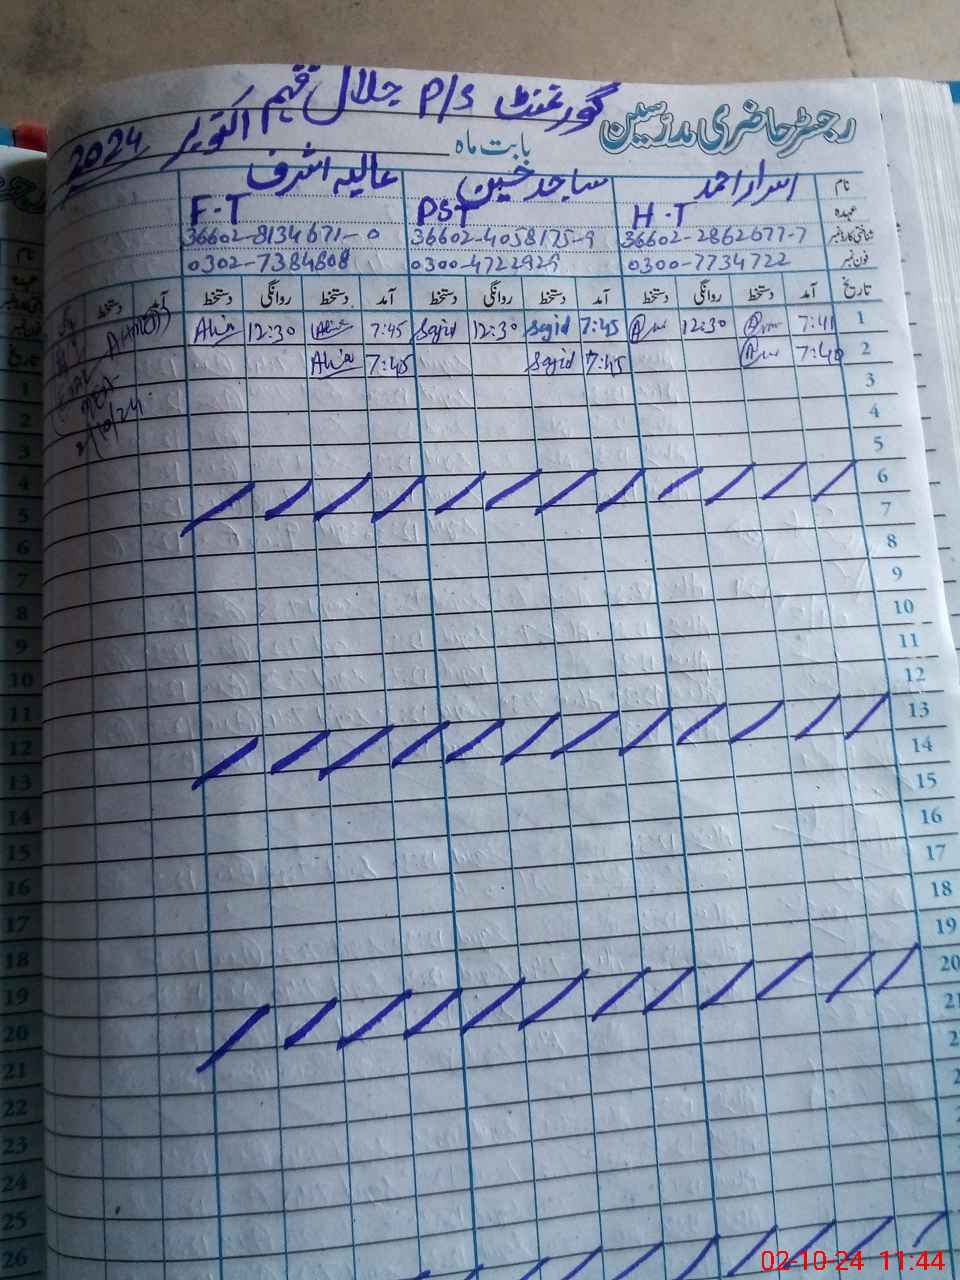 رجسٹر حاضری مدرسین
گورنمنٹ P/S جلال فہیم
بابت ماہ اکتوبر 2024
نام اسرار احمد ساجد حسین عالیہ اشرف
عہدہ H.T PST F.T
شناختی کارڈ نمبر 36602-2862677-7 36602-4058175-9 36602-8134671-0
فون نمبر 0300-7734722 0300-4722929 0302-7384808
تاریخ آمد دستخط روانگی دستخط آمد دستخط روانگی دستخط آمد دستخط روانگی دستخط آمد دستخط
1 7:41 12:30 7:45 Sajid 12:30 Sajid 7:45 Alia 12:30 Alia
2 7:40 7:45 Sajid 7:45 Alia
3
4
5
6
7
8
9
10
11
12
13
14
15
16
17
18
19
20
21
1
2
3
4
5
6
7
8
9
10
11
12
13
14
15
16
17
18
19
20
21
22
23
24
25
26
02-10-24 11:44